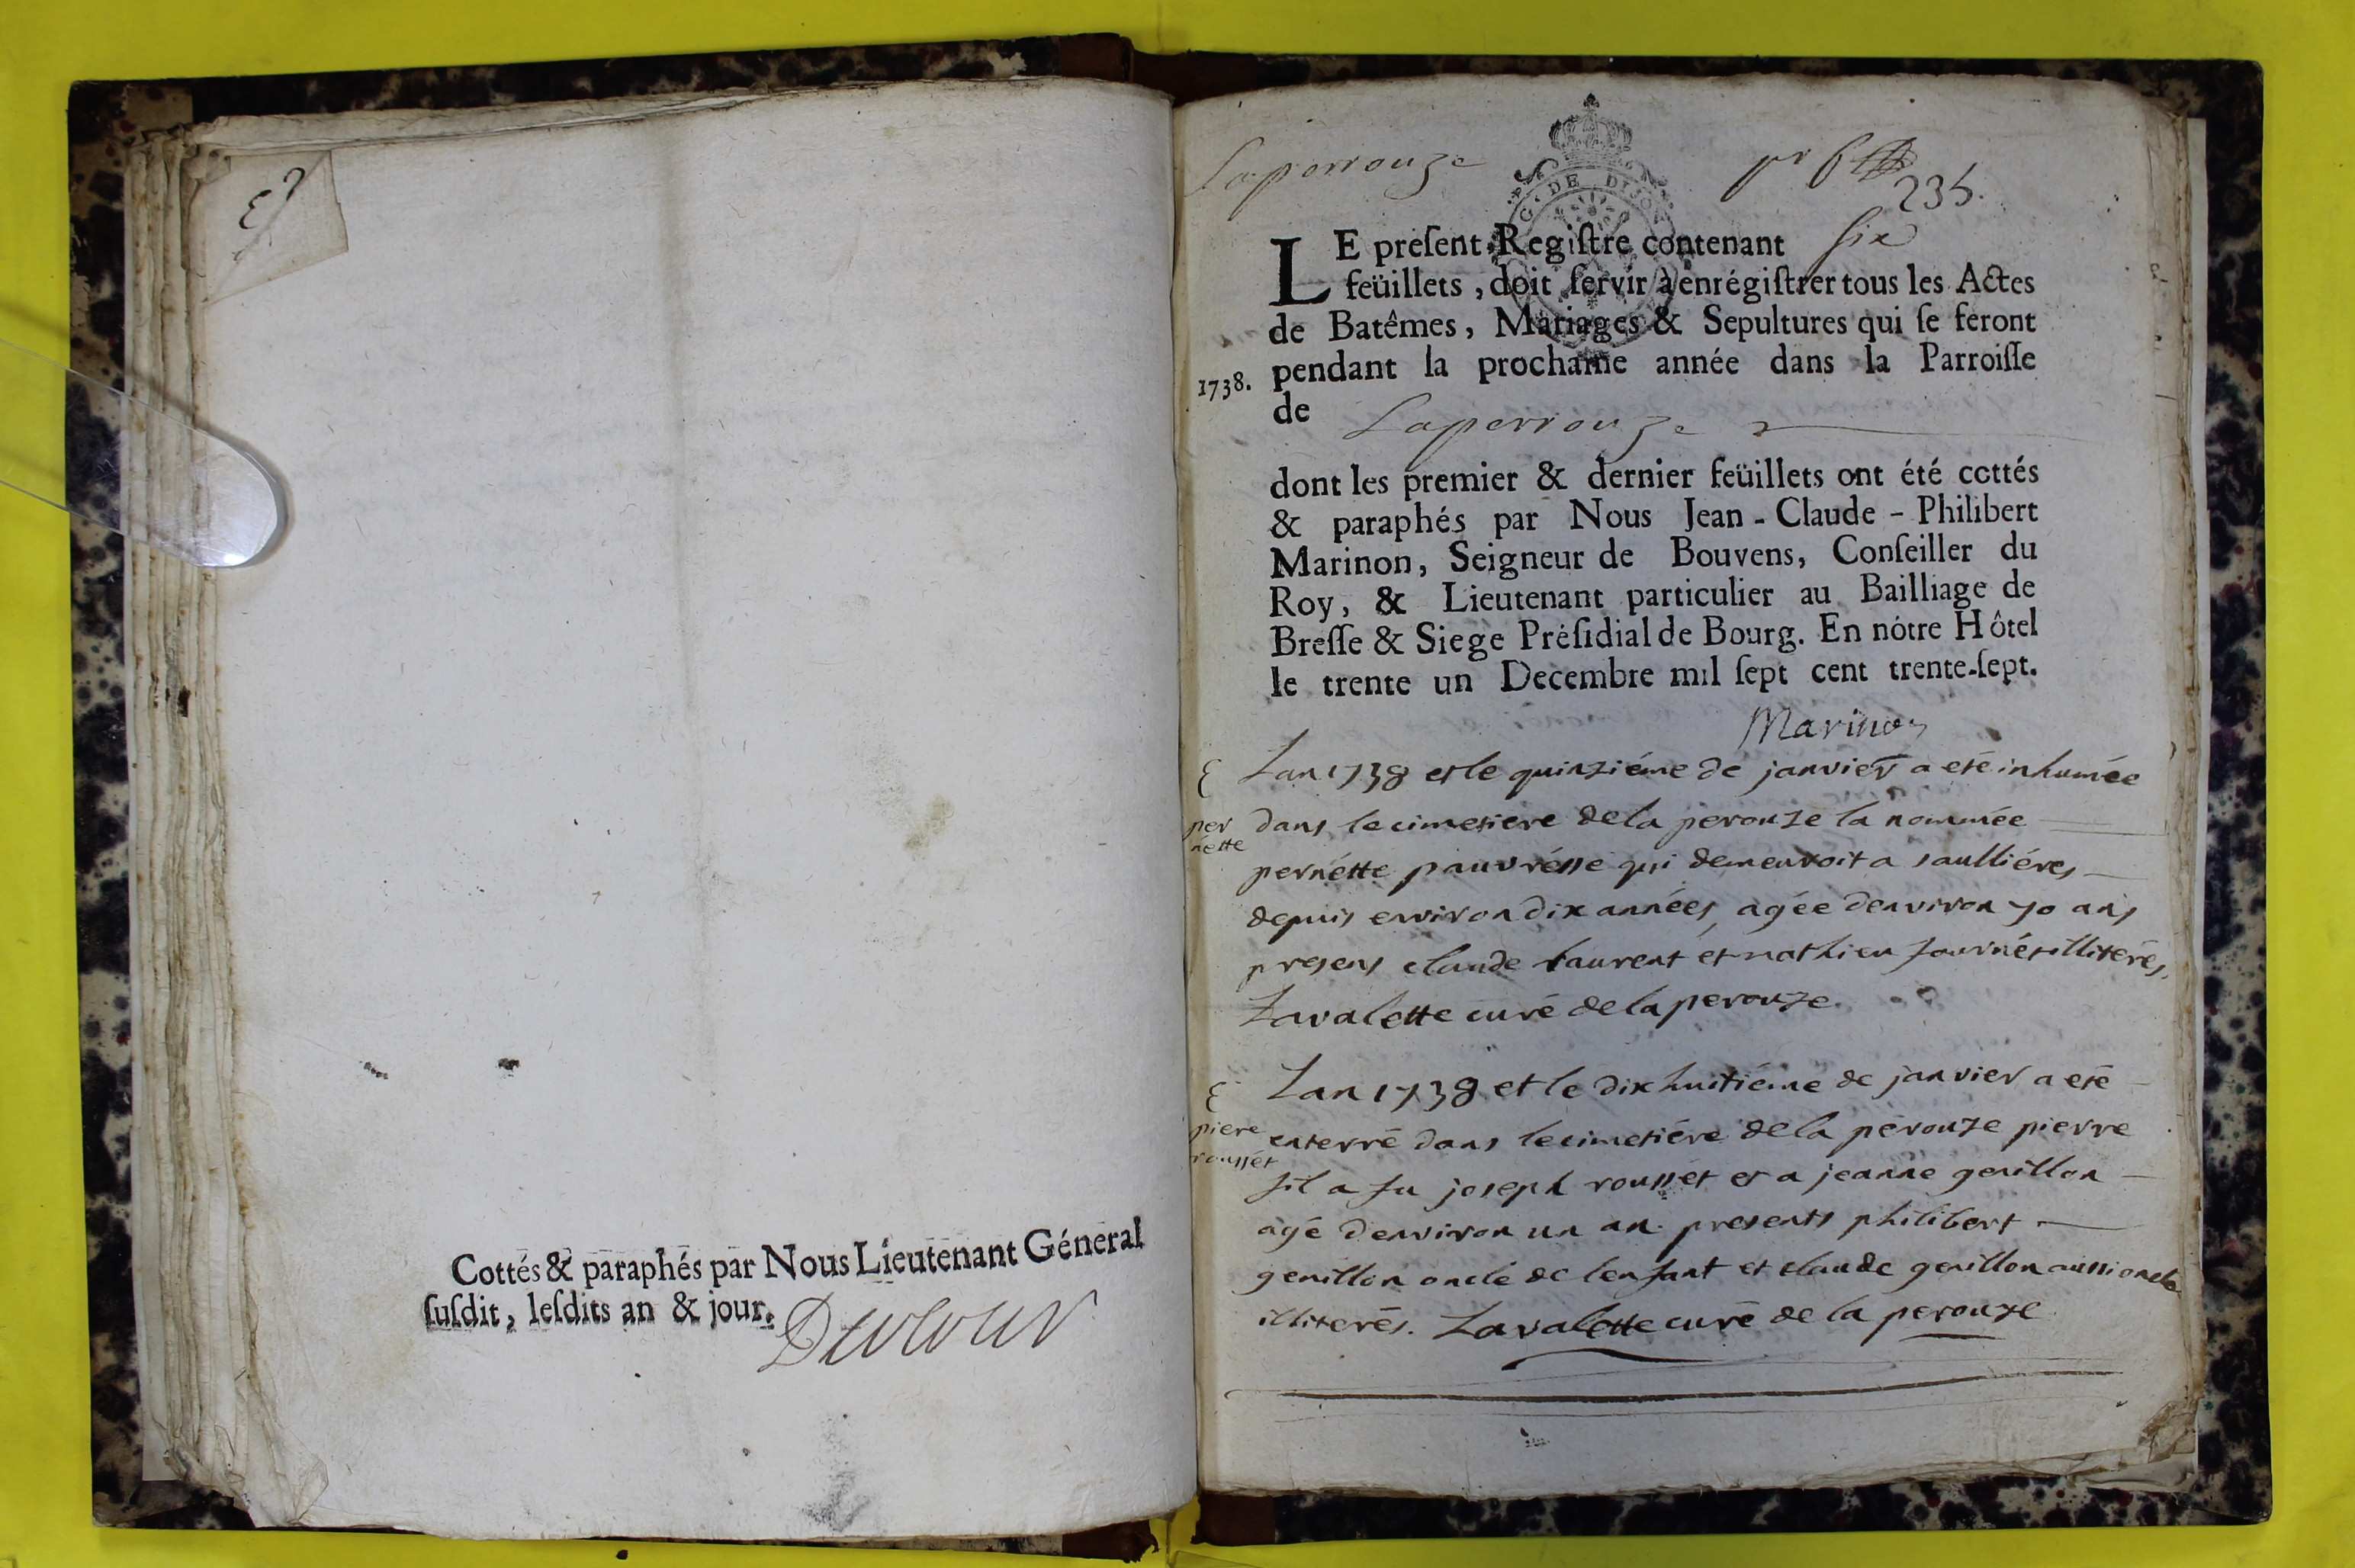 Cottés & paraphés par Nous Lieutenant Géneral
ſuſdit, leſdits an & jour.
Laperrouze
235.
G. DE DIJON
LE preſent Regiſtre contenant six
feüillets, doit ſervir à enrégiſtrer tous les Actes
de Batêmes, Mariages & Sepultures qui ſe feront
1738. pendant la prochaine année dans la Parroiſſe
de Laperrouze
dont les premier & dernier feüillets ont été cottés
& paraphés par Nous Jean-Claude-Philibert
Marinon, Seigneur de Bouvens, Conſeiller du
Roy, & Lieutenant particulier au Bailliage de
Breſſe & Siege Préſidial de Bourg. En nôtre Hôtel
le trente un Decembre mil ſept cent trente-ſept.
Marinon
Lan 1738 et le quinziéme de janvier a eté inhumée
per
nette
dans le cimetiere de la perouze la nommée
pernétte pauvrésse qui demeuroit a saulliéres
depuis environ dix années, agée denviron 70 ans
presens claude laurent et mathieu fournét illiterés.
Lavalette curé de la perouze.
Lan 1738 et le dixhuitiéme de janvier a eté
piere
roussét
enterré dans le cimetiére de la pérouze pierre
fil a fu joseph rousset et a jeanne genillon
agé denviron un an. presents philibert
genillon oncle de lenfant et claude genillon aussi oncle
illiterés. Lavalette curé de la perouze